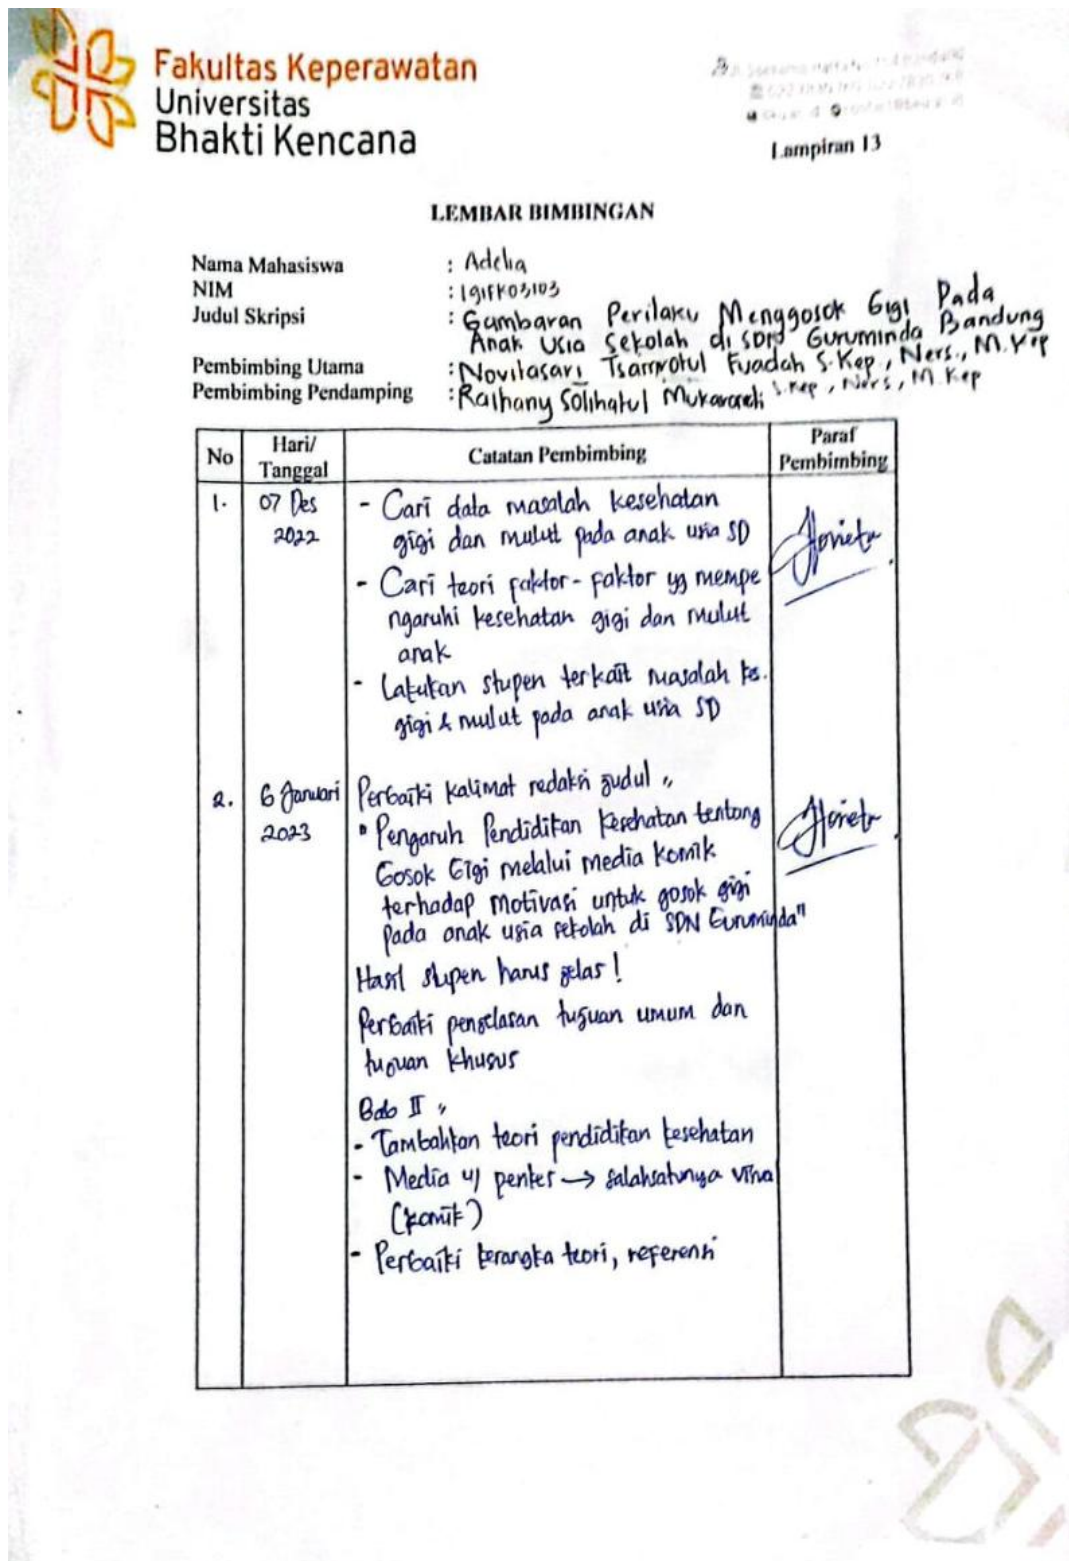 Fakultas Keperawatan
Universitas
Bhakti Kencana
Lampiran 13
LEMBAR BIMBINGAN
Nama Mahasiswa : Adelia
NIM : 191FK03103
Judul Skripsi : Gambaran Perilaku Menggosok Gigi Pada
Anak Usia Sekolah di SDN Guruminda Bandung
Pembimbing Utama : Novitasari Tsamrotul Fuadah S.Kep., Ners., M.Kep
Pembimbing Pendamping : Raihany Solihatul Mukaromah S.Kep, Ners, M.Kep
No Hari/ Tanggal Catatan Pembimbing Paraf Pembimbing
1. 07 Des 2022
- Cari data masalah kesehatan
gigi dan mulut pada anak usia SD
- Cari teori faktor-faktor yg mempe
ngaruhi kesehatan gigi dan mulut
anak
- Lakukan stupen terkait masalah kes.
gigi & mulut pada anak usia SD
2. 6 Januari 2023
Perbaiki kalimat redaksi judul "
" Pengaruh Pendidikan Kesehatan tentang
Gosok Gigi melalui media komik
terhadap motivasi untuk gosok gigi
pada anak usia sekolah di SDN Guruminda"
Hasil stupen harus jelas!
Perbaiki penjelasan tujuan umum dan
tujuan khusus
Bab II "
- Tambahkan teori pendidikan kesehatan
- Media u/ penkes → salahsatunya
(komik)
- Perbaiki kerangka teori, referensi